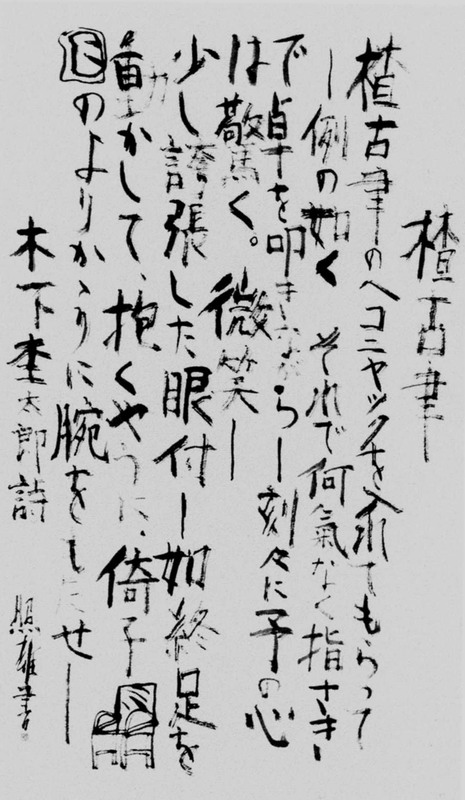 楂古聿
楂古聿のへコニヤックを入れてもらつて
―例の如く それで何氣なく指さき
で卓を叩きながら―刻々に予の心
は驚く。微笑―
少し誇張した眼付―如終足を
動かして、抱くやうに、倚子
のよりかゝりに腕をもたせ―
木下杢太郎詩
照雄書